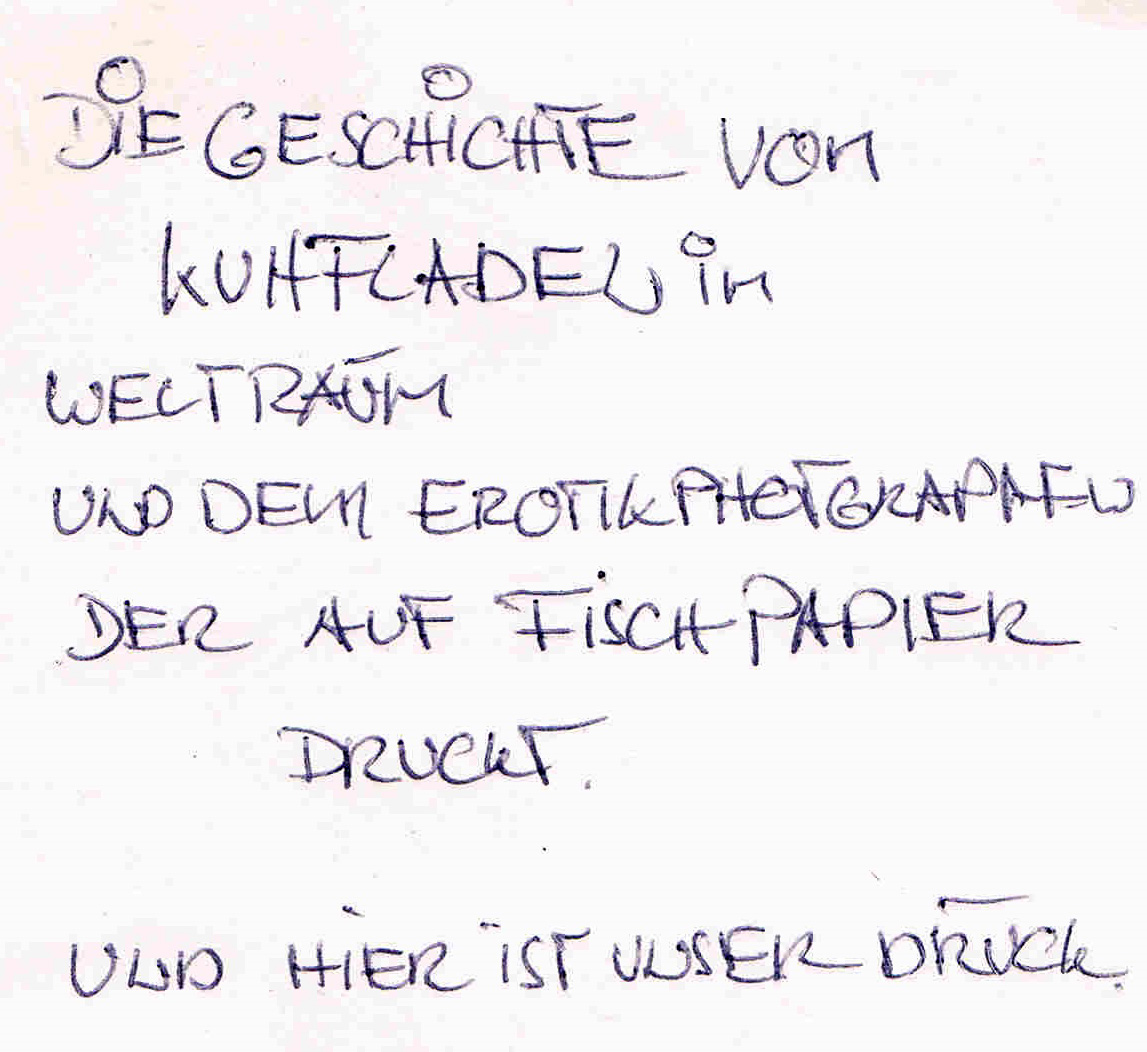 DIE GESCHICHTE VOM
KUHFLADEN im
WELTRAUM
UND DEM EROTIKPHOTGRAPHEN
DER AUF FISCHPAPIER
DRUCKT.
UND HIER IST UNSER DRUCK.